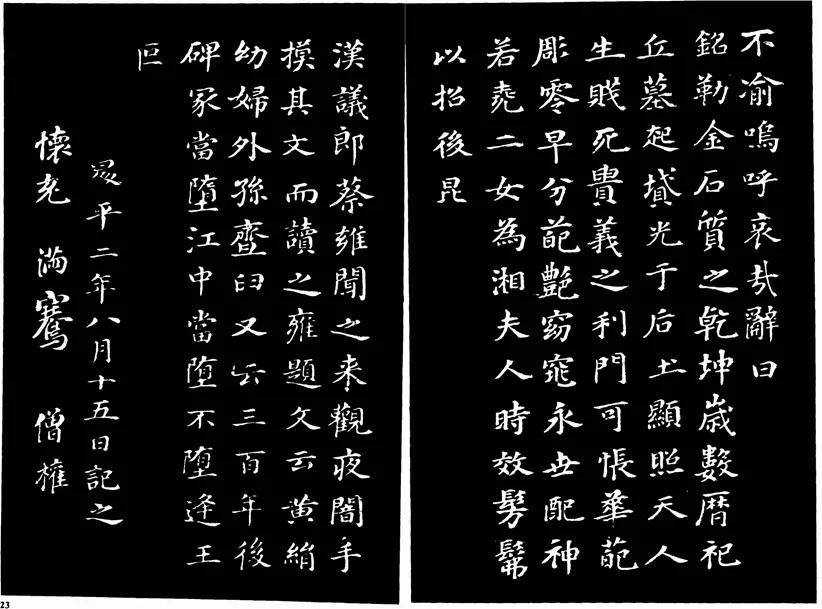 不渝嗚呼哀哉辭曰
銘勒金石質之乾坤歲數曆祀
丘墓起墳光于后土顯照天人
生賤死貴義之利門可悵華葩
彫零早分葩艷窈窕永世配神
若堯二女為湘夫人時效髣髴
以招後昆
漢議郎蔡雍聞之来觀夜闇手
摸其文而讀之雍題文云黃絹
幼婦外孫韲臼又云三百年後
碑冢當墮江中當墮不墮逢王
叵
昇平二年八月十五日記之
懷充 滿騫 僧權
23